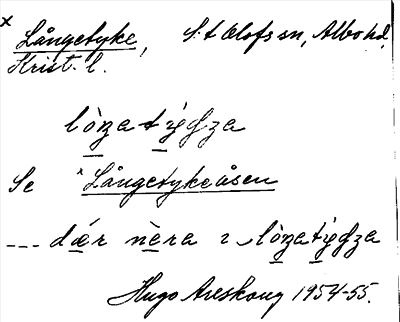 x Långetyke, S:t Olofs sn, Albo hd,
Krist. l.
lòŋatýꞬza
Se ^ Långetykeåsen
--- dǽr nèra i lòŋatýꞬza
Hugo Areskoug 1954-55.